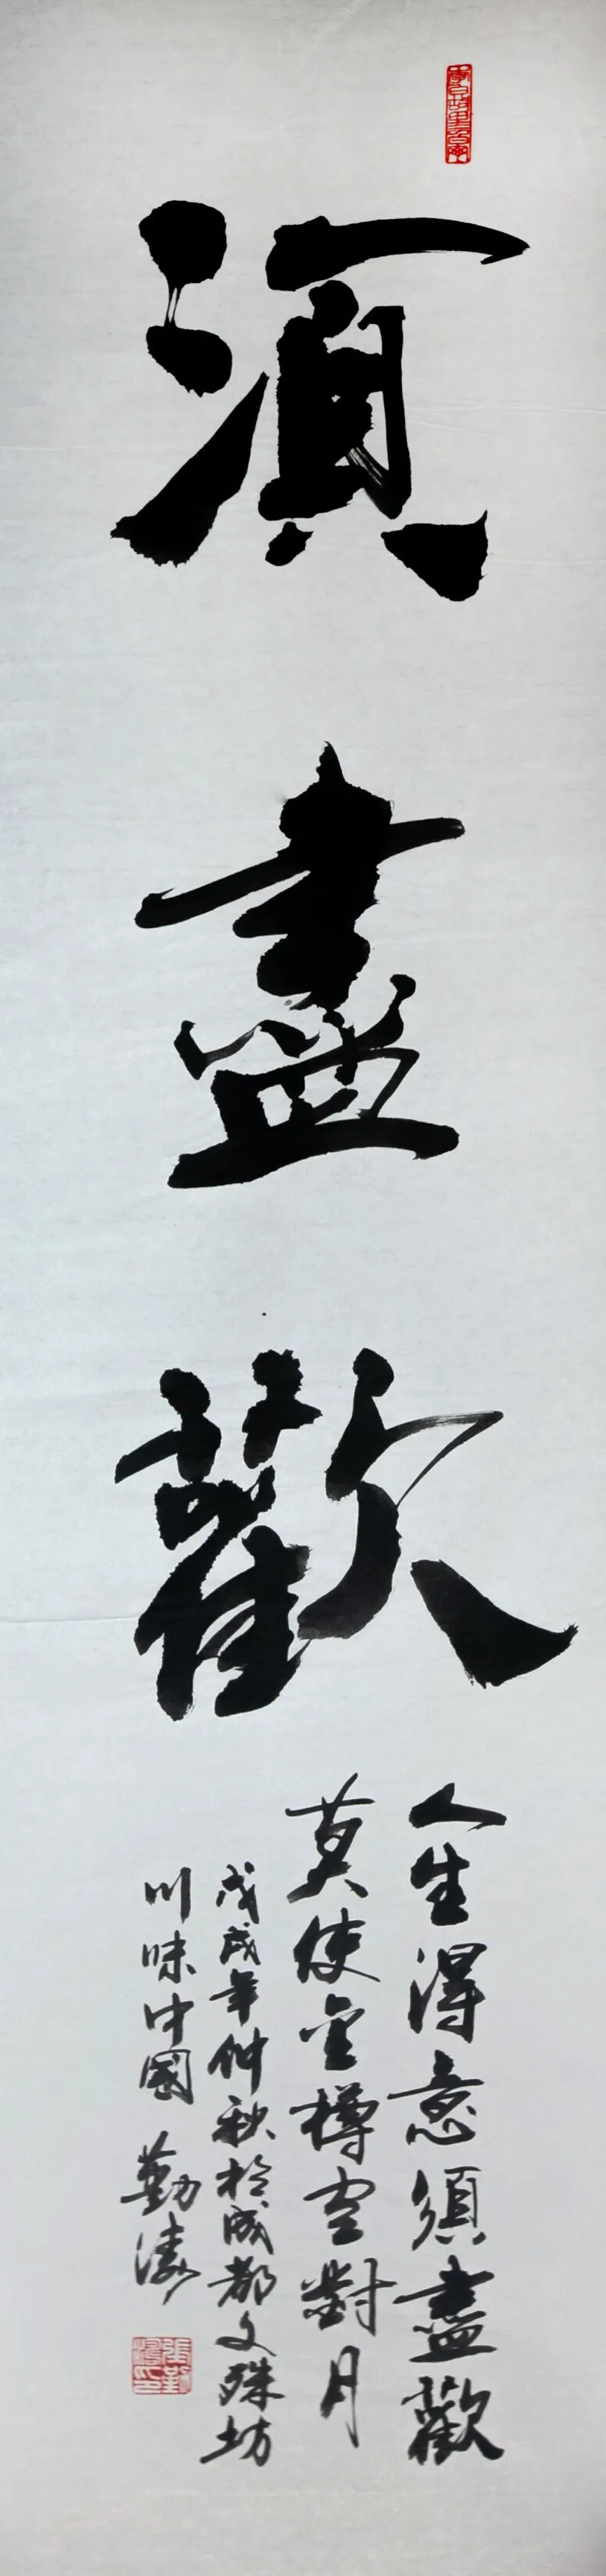 須盡歡
人生得意須盡歡
莫使金樽空對月
戊戌年仲秋於成都文殊坊
川味中國 勤濤
張勤濤印